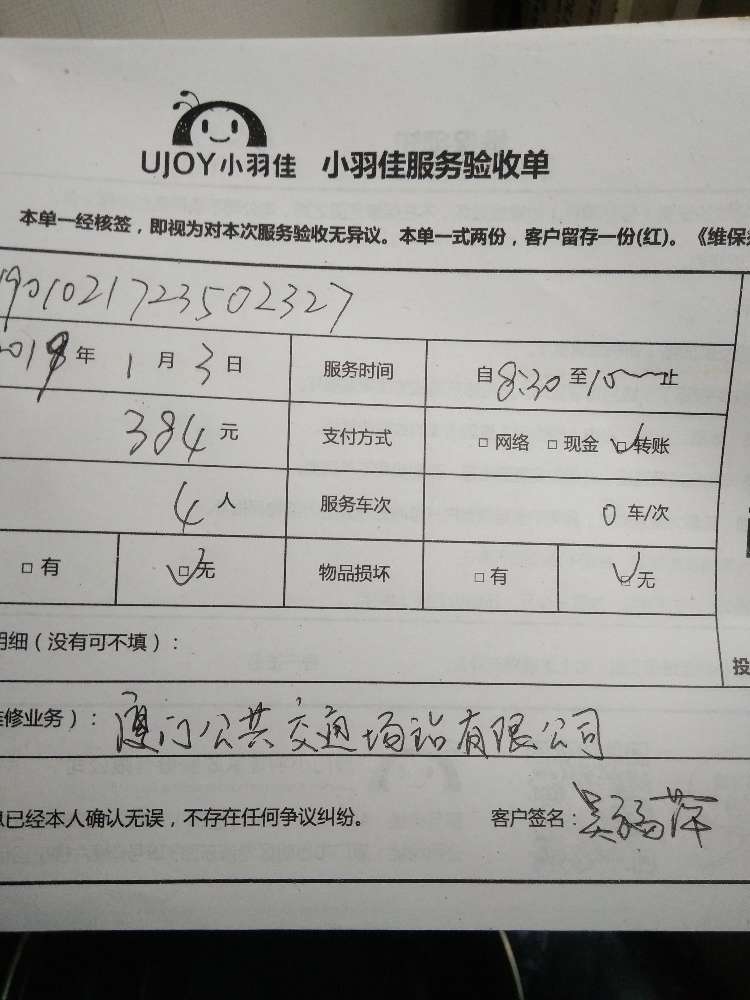 UJOY小羽佳 小羽佳服务验收单
本单一经核签，即视为对本次服务验收无异议。本单一式两份，客户留存一份(红)。《维保
1901021723502327
2019年1月3日 服务时间 自8:30至10 止
384元 支付方式 □网络 □现金 ☑转账
4人 服务车次 0车/次
□有 ☑无 物品损坏 □有 ☑无
明细（没有可不填）：
投
修业务）：厦门公共交通场站有限公司
已经本人确认无误，不存在任何争议纠纷。 客户签名：吴